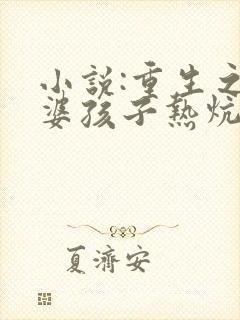 小説:重生之
婆孩子熱炕
夏濟安